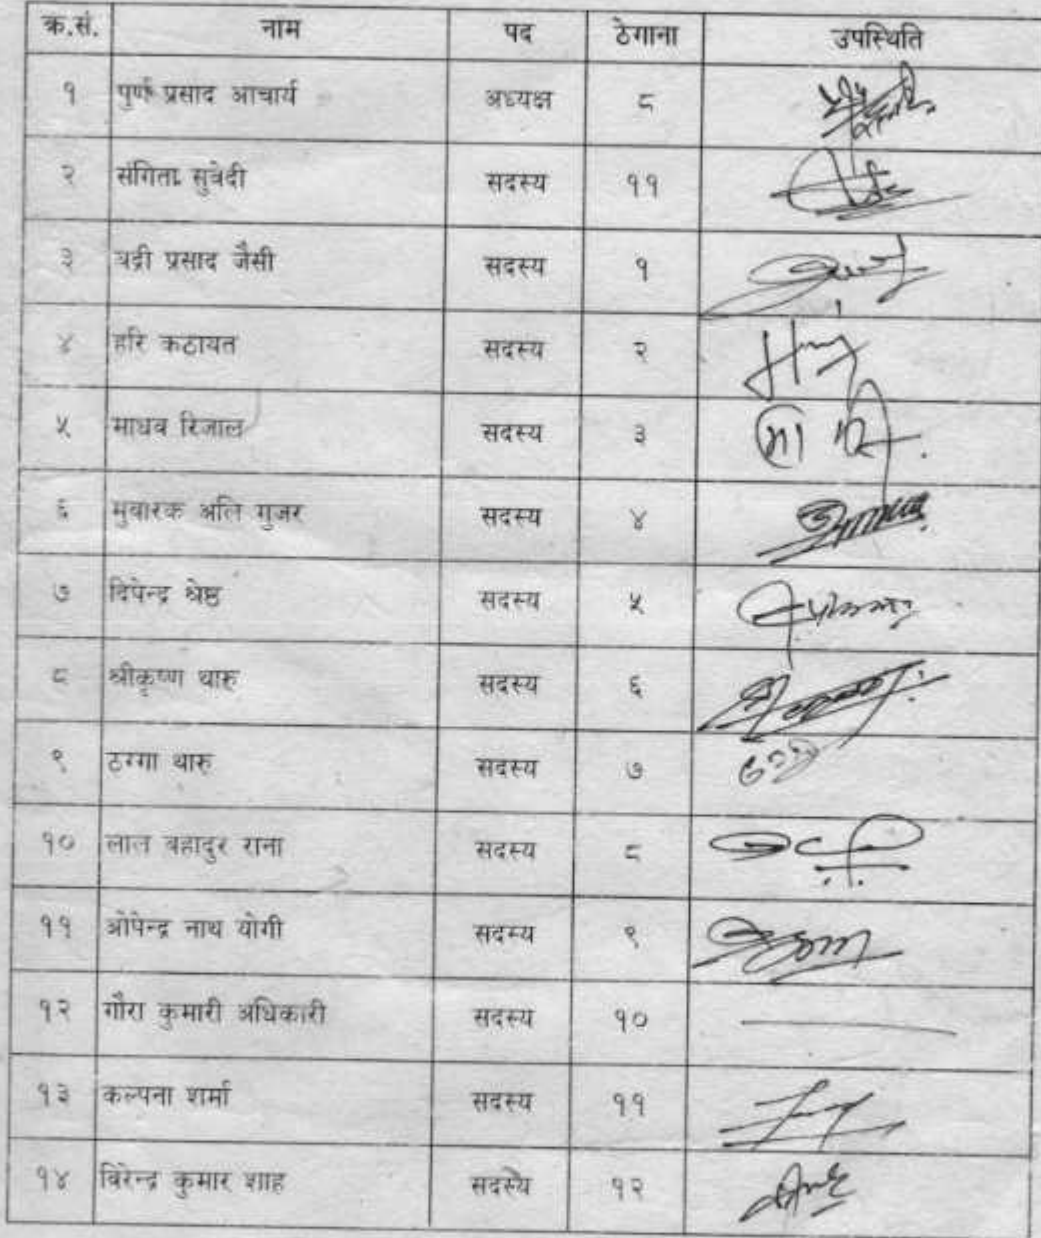 क्र.सं. नाम पद ठेगाना उपस्थिति
१ पुर्ण प्रसाद आचार्य अध्यक्ष ८
२ संगिता सुवेदी सदस्य ११
३ बद्री प्रसाद जैसी सदस्य १
४ हरि कठायत सदस्य २
५ माधव रिजाल सदस्य ३
६ मुबारक अलि गुजर सदस्य ४
७ दिपेन्द्र श्रेष्ठ सदस्य ५
८ श्रीकृष्ण थारु सदस्य ६
९ ठग्गा थारु सदस्य ७
१० लाल बहादुर राना सदस्य ८
११ ओपेन्द्र नाथ योगी सदस्य ९
१२ गौरा कुमारी अधिकारी सदस्य १०
१३ कल्पना शर्मा सदस्य ११
१४ बिरेन्द्र कुमार शाह सदस्य १२